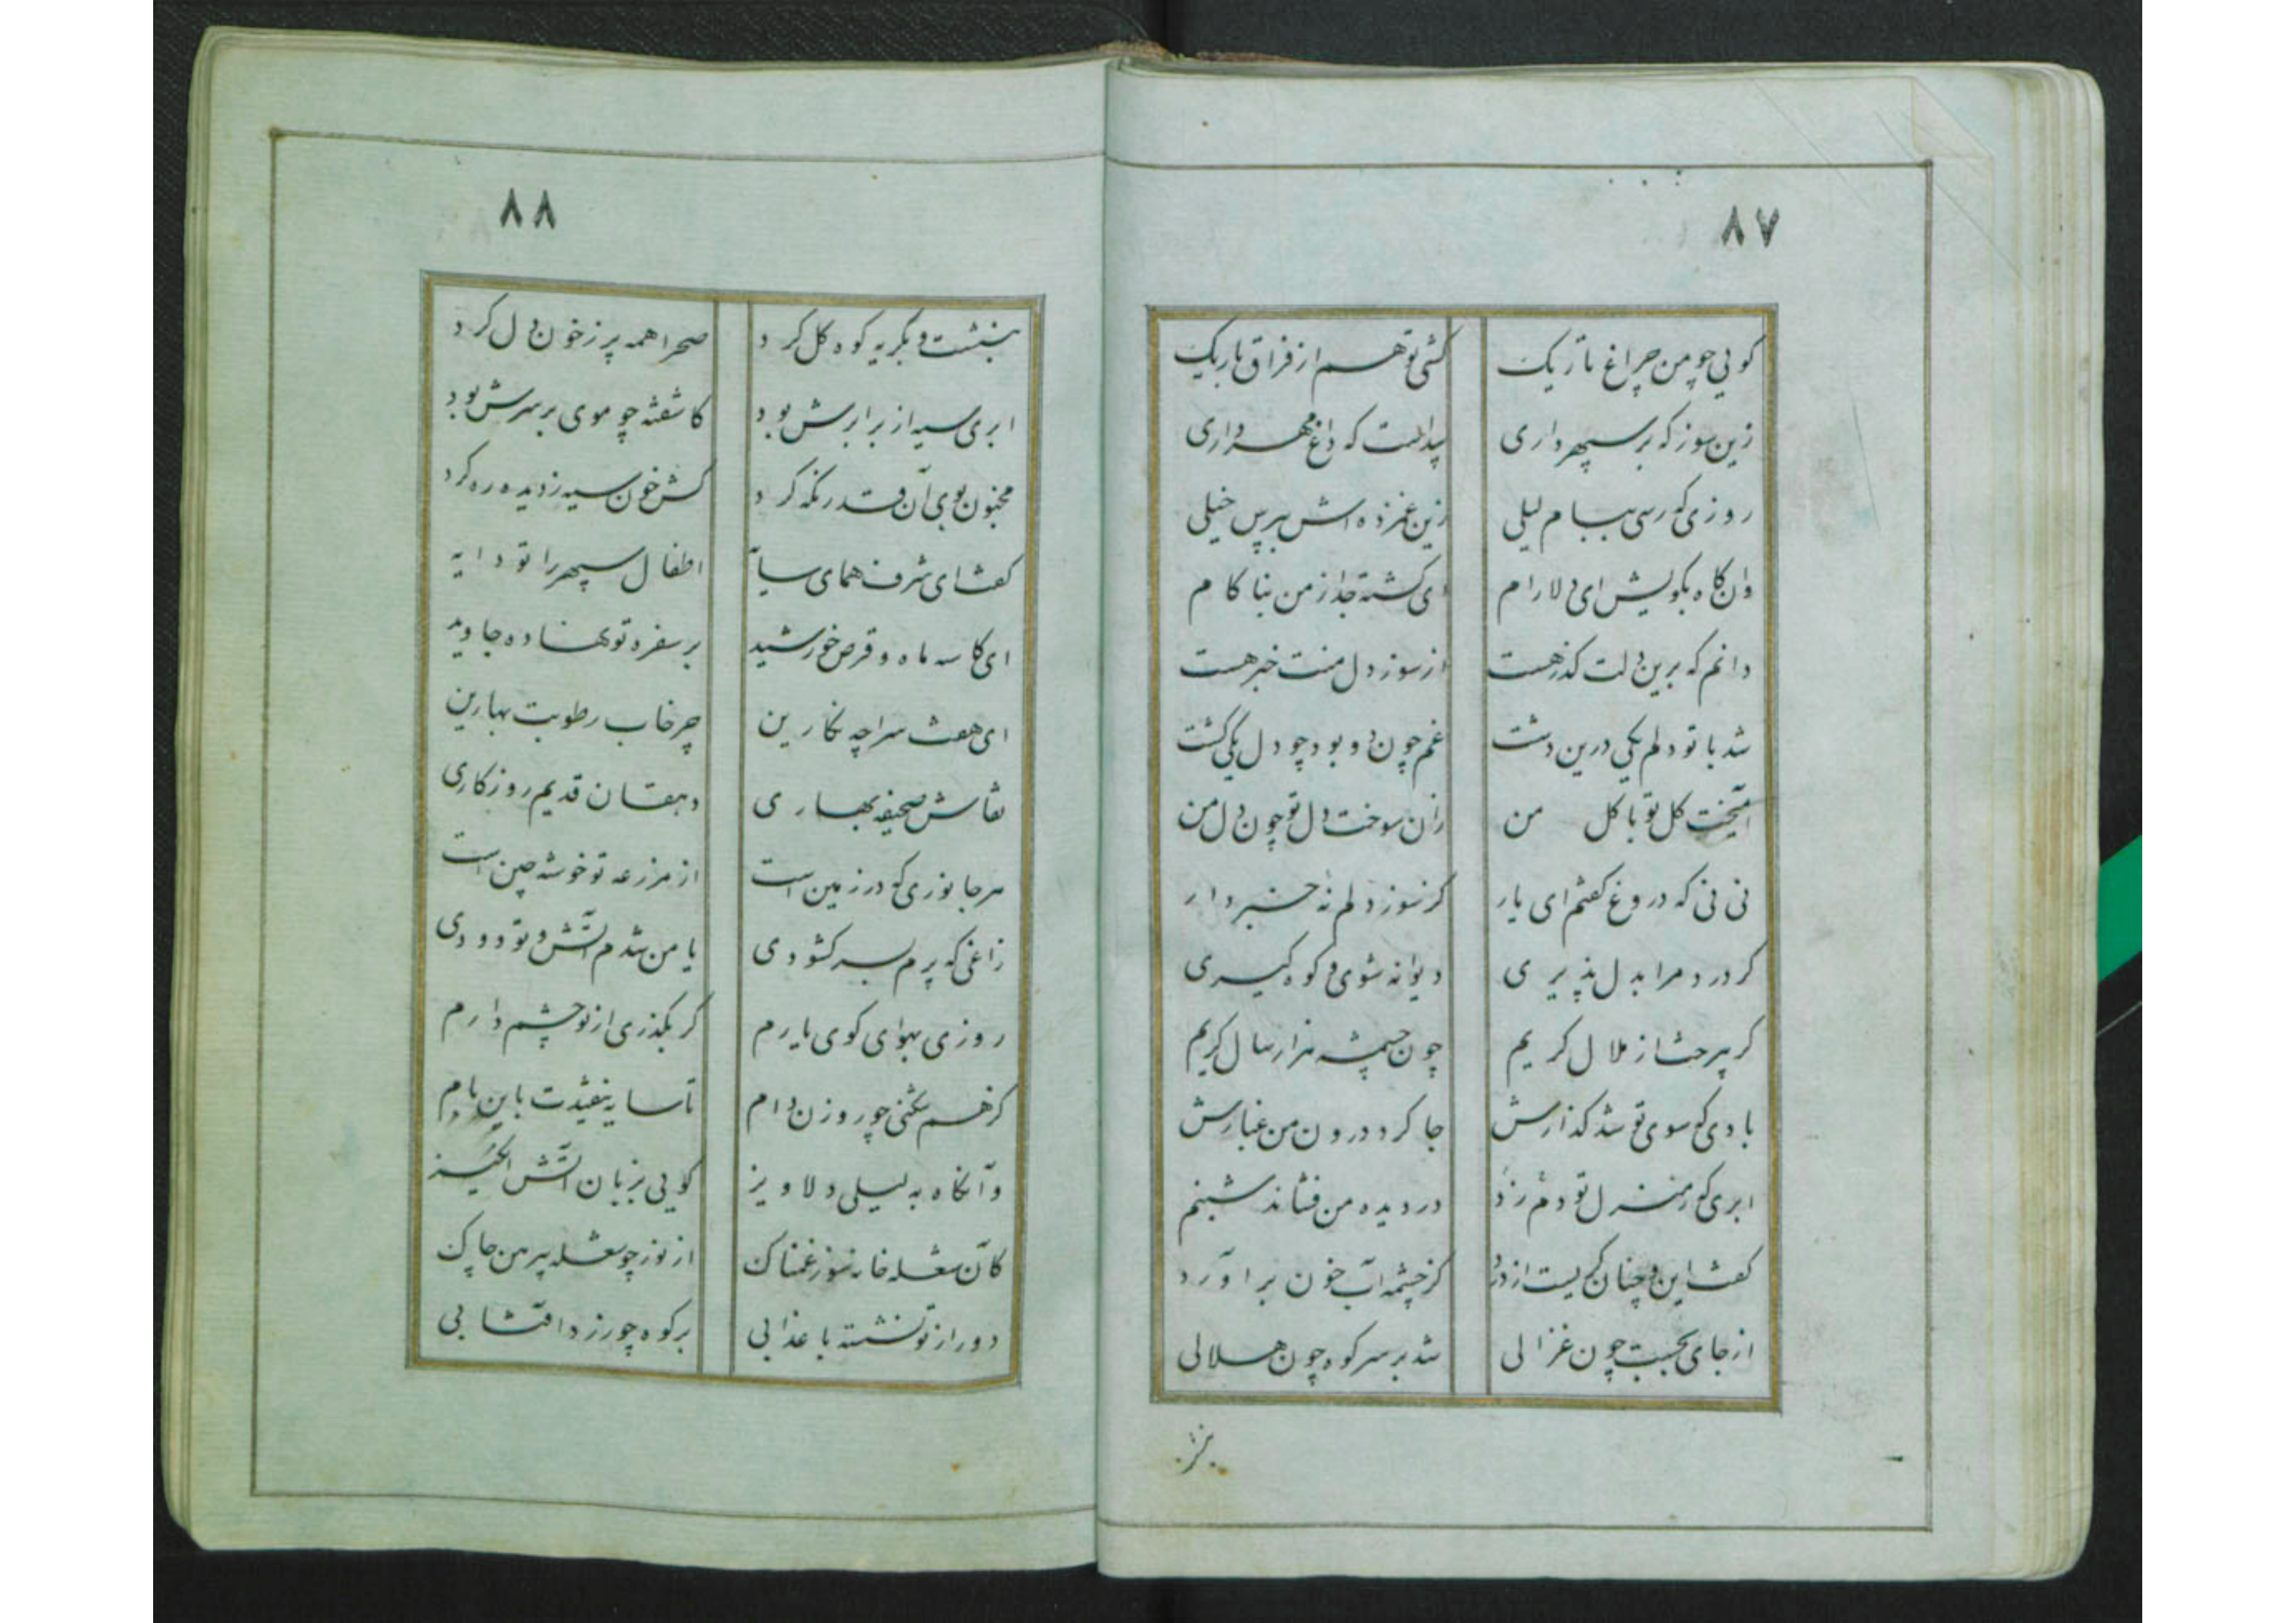 ۸۷
کویی چو من چراغ تاریک کشی تو هم از فراق باریک
زین سوز که بر سپهر داری پیداست که داغ مهر داری
روزی که رسی ببام لیلی زین غمزده اش بپرس خیلی
وان گاه بگویش ای دلارام ای گشته جدا ز من بناکام
دانم که برین دلت گذر هست از سوز دل منت خبر هست
شد با تو دلم یکی درین دشت غم چون دو بود چو دل یکی گشت
آمیخت گل تو با گل من زان سوخت دل تو چون دل من
نی نی که دروغ گفتم ای یار کز سوز دلم نه خبر دار
گر درد مرا بدل پذیری دیوانه شوی و کوه گیری
گر پرحشا ز ملال گریم چون چشمه هزار سال گریم
بادی که سوی تو شد گذارش جا کرد درون من غبارش
ابری که ز منزل تو دم زد در دیده من فشاند شبنم
گفت این و چنان گریست از درد کز چشمه آب خون برآورد
از جای بجست چون غزالی شد بر سر کوه چون هلالی
۸۸
بنشست و بگریه کوه گل کرد صحرا همه پر ز خون دل کرد
ابری سیه از برابرش بود کاشفته چو موی بر سرش بود
مجنون بوی آن قدر نگه کرد کش خون سیه ز دیده ره کرد
گفت ای شرف همای سایه اطفال سپهر را تو دایه
ای کاسه ماه و قرص خورشید بر سفره تو نهاده جاوید
ای هفت سراچه نگارین چرخاب رطوبت بهارین
نقاش صحیفه بهاری دهقان قدیم روزگاری
هر جانوری که در زمین است از مزرعه تو خوشه چین است
زاغی که پرم بسر گشودی یا من شدم آتش و تو دودی
روزی بهوای کوی یارم گر بگذری از تو چشم دارم
کز هم شکنی چو روزن دام تا سایه نیفتدت باین بام
وآنگاه به لیلی دلاویز گویی بزبان آتش انگیز
کآن شعله خانه سوز غمناک از نور چو شعله پیرهن چاک
دور از تو نشسته با عذابی بر کوه چو زرد آفتابی